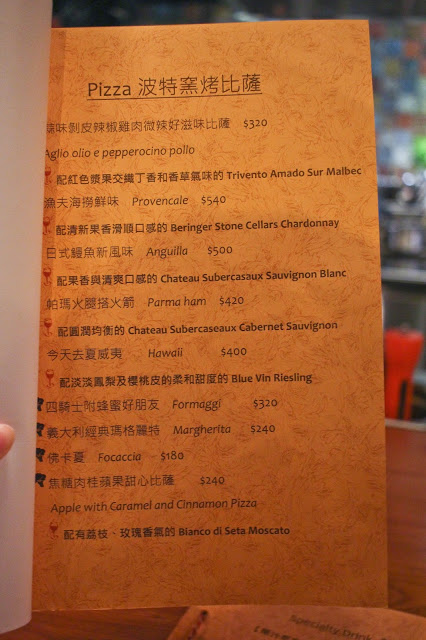 Pizza 波特窯烤比薩
蒜味剝皮辣椒雞肉微辣好滋味比薩 $320
Aglio olio e pepperocino pollo
配紅色漿果交織丁香和香草氣味的 Trivento Amado Sur Malbec
漁夫海撈鮮味 Provencale $540
配清新果香滑順口感的 Beringer Stone Cellars Chardonnay
日式鰻魚新風味 Anguilla $500
配果香與清爽口感的 Chateau Subercasaux Sauvignon Blanc
帕瑪火腿搭火箭 Parma ham $420
配圓潤均衡的 Chateau Subercaseaux Cabernet Sauvignon
今天去夏威夷 Hawaii $400
配淡淡鳳梨及櫻桃皮的柔和甜度的 Blue Vin Riesling
四騎士咐蜂蜜好朋友 Formaggi $320
義大利經典瑪格麗特 Margherita $240
佛卡夏 Focaccia $180
焦糖肉桂蘋果甜心比薩 $240
Apple with Caramel and Cinnamon Pizza
配有荔枝、玫瑰香氣的 Bianco di Seta Moscato
Specialty Drink